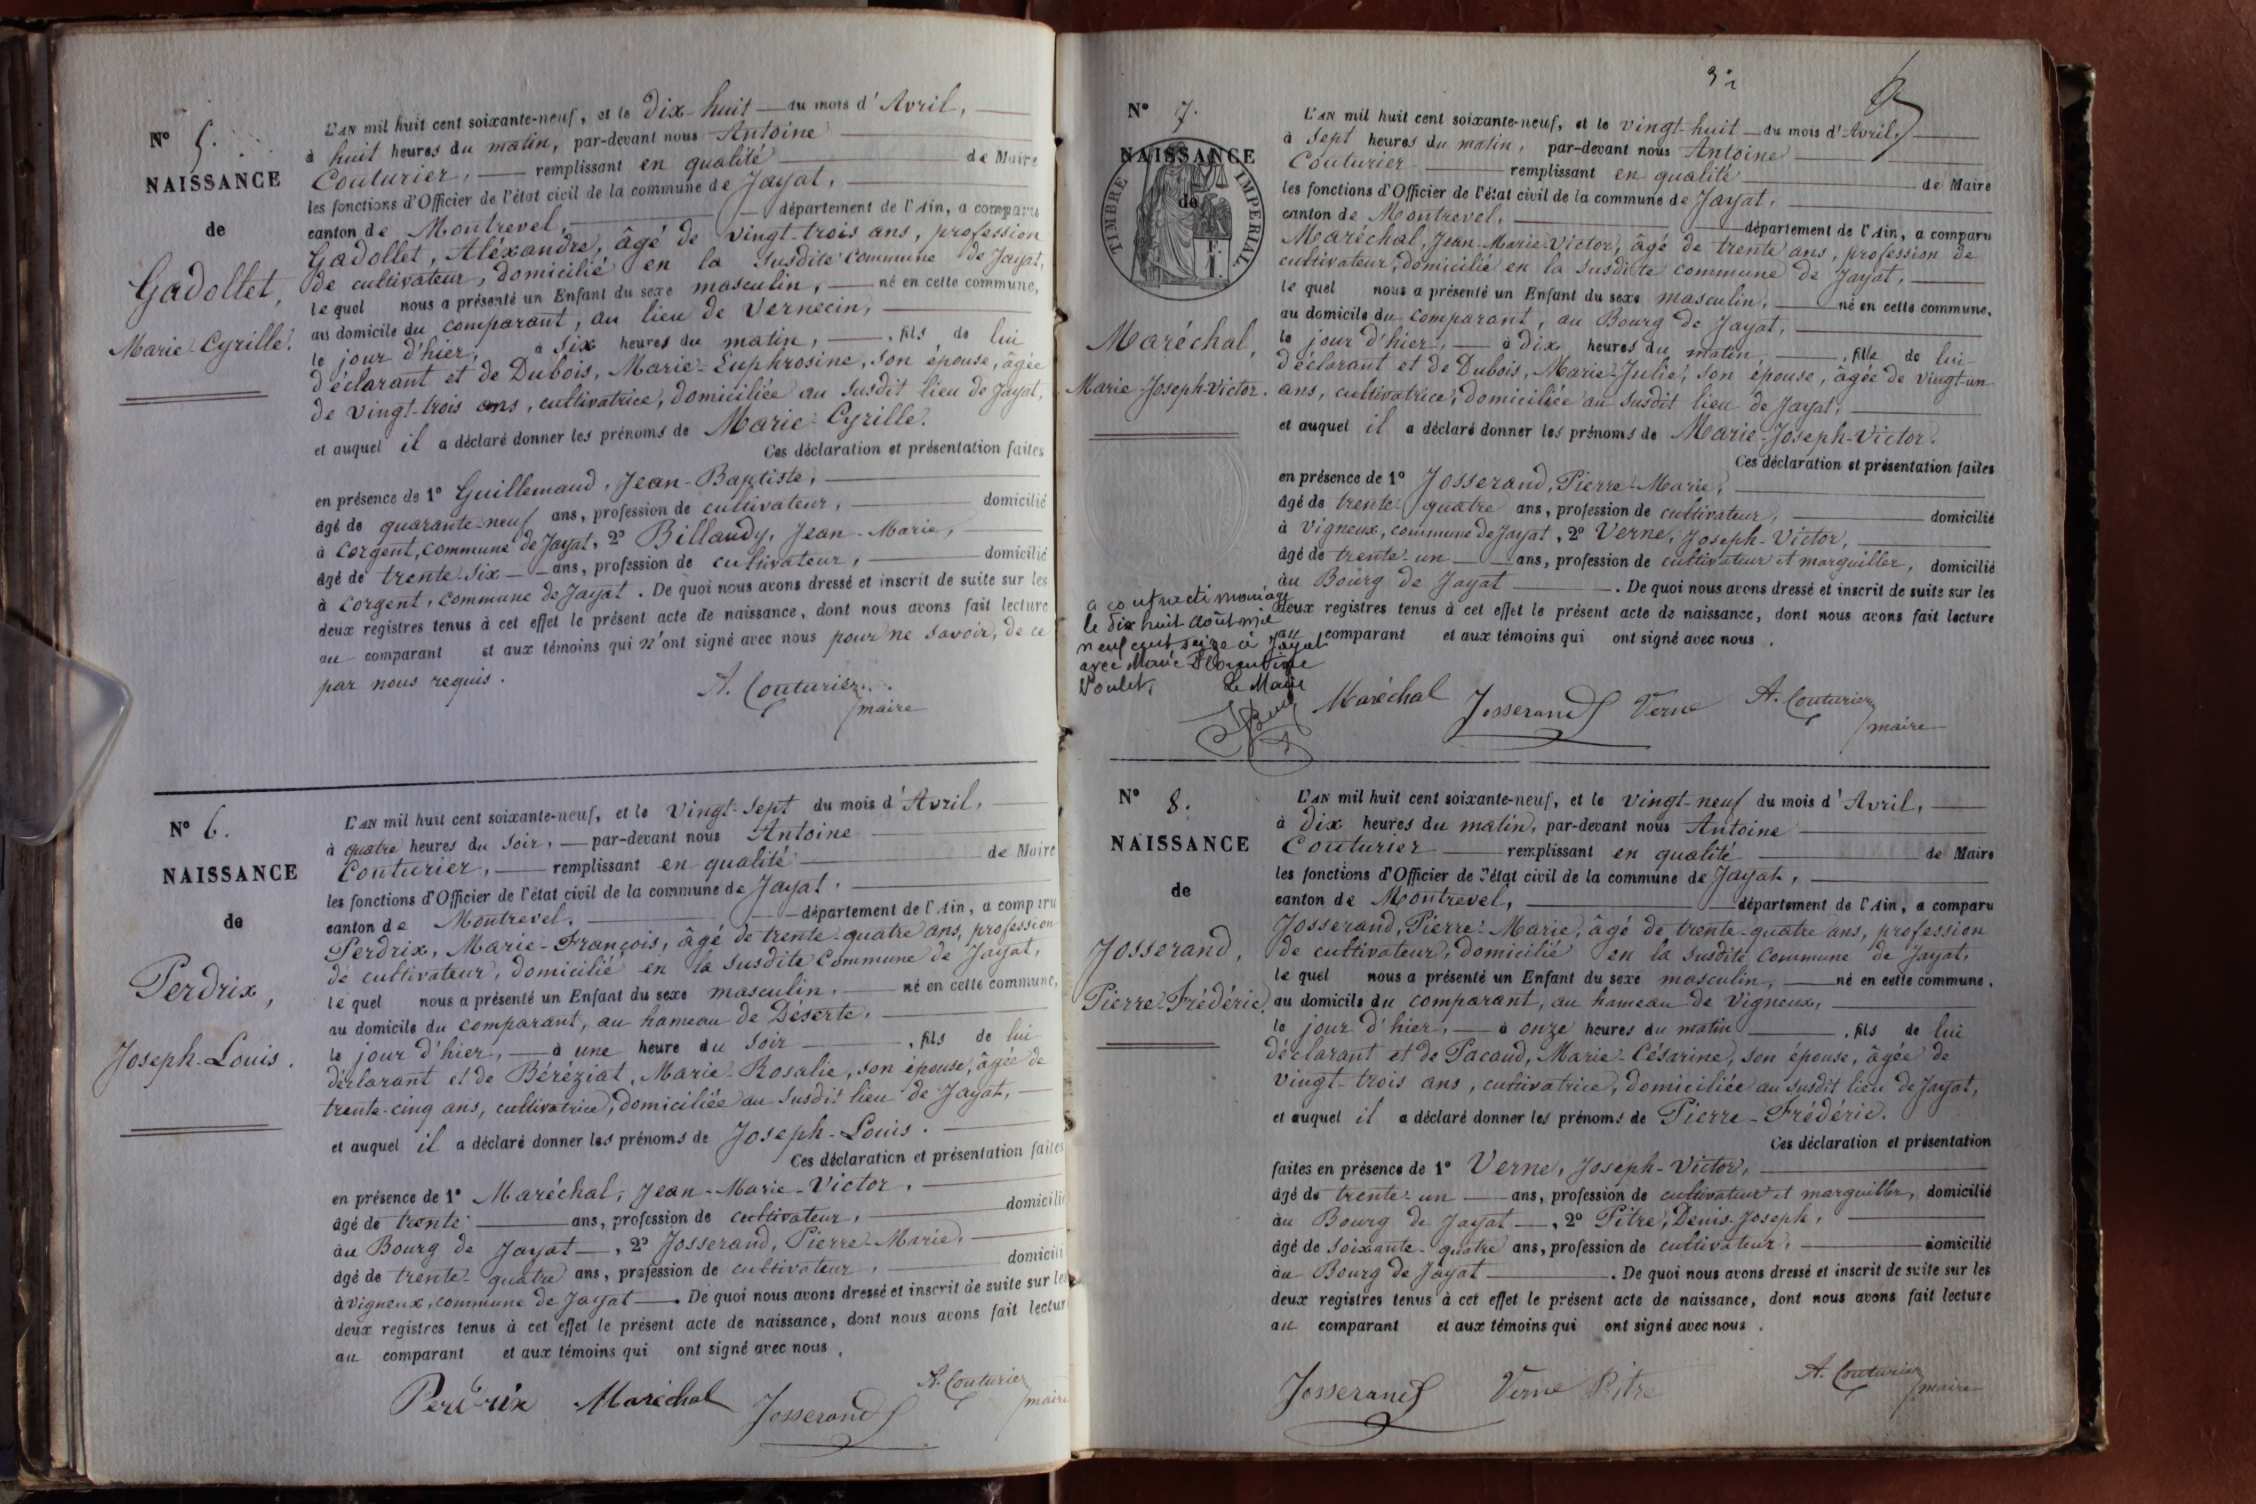 N° 5.
NAISSANCE
de
Gadollet,
Marie-Cyrille.
L'AN mil huit cent soixante-neuf, et le dix-huit du mois d'Avril,
à huit heures du matin, par-devant nous Antoine
Couturier, remplissant en qualité de Maire
les fonctions d'Officier de l'état civil de la commune de Jayat,
canton de Montrevel, département de l'Ain, a comparu
Gadollet, Aléxandre, âgé de vingt-trois ans, profession
de cultivateur, domicilié en la susdite commune de Jayat,
lequel nous a présenté un Enfant du sexe masculin, né en cette commune,
au domicile du comparant, au lieu de Vernecin,
le jour d'hier, à six heures du matin, , fils de lui
déclarant et de Dubois, Marie-Euphrosine, son épouse, âgée
de vingt-trois ans, cultivatrice, domiciliée au susdit lieu de Jayat,
et auquel il a déclaré donner les prénoms de Marie-Cyrille.
Ces déclaration et présentation faites
en présence de 1° Guillemaud, Jean-Baptiste,
âgé de quarante-neuf ans, profession de cultivateur, domicilié
à Corgent, commune de Jayat, 2° Billaudy, Jean-Marie,
âgé de trente-six ans, profession de cultivateur, domicilié
à Corgent, commune de Jayat. De quoi nous avons dressé et inscrit de suite sur les
deux registres tenus à cet effet le présent acte de naissance, dont nous avons fait lecture
au comparant et aux témoins qui n'ont signé avec nous pour ne savoir, de ce
par nous requis.
A. Couturier
maire
N° 6.
NAISSANCE
de
Perdrix,
Joseph-Louis.
L'AN mil huit cent soixante-neuf, et le vingt-sept du mois d'Avril,
à quatre heures du soir, par-devant nous Antoine
Couturier, remplissant en qualité de Maire
les fonctions d'Officier de l'état civil de la commune de Jayat,
canton de Montrevel, département de l'Ain, a comparu
Perdrix, Marie-François, âgé de trente-quatre ans, profession
de cultivateur, domicilié en la susdite commune de Jayat,
lequel nous a présenté un Enfant du sexe masculin, né en cette commune,
au domicile du comparant, au hameau de Déserte,
le jour d'hier, à une heure du soir , fils de lui
déclarant et de Béréziat, Marie-Rosalie, son épouse, âgée de
trente-cinq ans, cultivatrice, domiciliée au susdit lieu de Jayat,
et auquel il a déclaré donner les prénoms de Joseph-Louis.
Ces déclaration et présentation faites
en présence de 1° Maréchal, Jean-Marie-Victor,
âgé de trente ans, profession de cultivateur, domicilié
au Bourg de Jayat, 2° Josserand, Pierre-Marie,
âgé de trente-quatre ans, profession de cultivateur, domicilié
à Vigneux, commune de Jayat. De quoi nous avons dressé et inscrit de suite sur les
deux registres tenus à cet effet le présent acte de naissance, dont nous avons fait lecture
au comparant et aux témoins qui ont signé avec nous.
Perdrix Maréchal Josserand A. Couturier
maire
N° 7.
NAISSANCE
de
TIMBRE IMPERIAL
Maréchal,
Marie-Joseph-Victor.
L'AN mil huit cent soixante-neuf, et le vingt-huit du mois d'Avril,
à sept heures du matin, par-devant nous Antoine
Couturier remplissant en qualité de Maire
les fonctions d'Officier de l'état civil de la commune de Jayat,
canton de Montrevel, département de l'Ain, a comparu
Maréchal, Jean-Marie-Victor, âgé de trente ans, profession de
cultivateur, domicilié en la susdite commune de Jayat,
lequel nous a présenté un Enfant du sexe masculin, né en cette commune,
au domicile du comparant, au Bourg de Jayat,
le jour d'hier, à dix heures du matin , fils de lui
déclarant et de Dubois, Marie-Julie, son épouse, âgée de vingt-un
ans, cultivatrice, domiciliée au susdit lieu de Jayat,
et auquel il a déclaré donner les prénoms de Marie-Joseph-Victor.
Ces déclaration et présentation faites
en présence de 1° Josserand, Pierre-Marie,
âgé de trente-quatre ans, profession de cultivateur, domicilié
à Vigneux, commune de Jayat, 2° Verne, Joseph-Victor,
âgé de trente-un ans, profession de cultivateur et marguiller, domicilié
au Bourg de Jayat. De quoi nous avons dressé et inscrit de suite sur les
deux registres tenus à cet effet le présent acte de naissance, dont nous avons fait lecture
au comparant et aux témoins qui ont signé avec nous.
a contracté mariage
le dix huit août mil
neuf cent seize à Jayat
avec Marie Florentine
Voulet,
Le Maire
Maréchal Josserand Verne A. Couturier
maire
N° 8.
NAISSANCE
de
Josserand,
Pierre-Frédéric.
L'AN mil huit cent soixante-neuf, et le vingt-neuf du mois d'Avril,
à dix heures du matin, par-devant nous Antoine
Couturier remplissant en qualité de Maire
les fonctions d'Officier de l'état civil de la commune de Jayat,
canton de Montrevel, département de l'Ain, a comparu
Josserand, Pierre-Marie, âgé de trente-quatre ans, profession
de cultivateur, domicilié en la susdite commune de Jayat,
lequel nous a présenté un Enfant du sexe masculin, né en cette commune,
au domicile du comparant, au hameau de Vigneux,
le jour d'hier, à onze heures du matin , fils de lui
déclarant et de Pacaud, Marie-Césarine, son épouse, âgée de
vingt-trois ans, cultivatrice, domiciliée au susdit lieu de Jayat,
et auquel il a déclaré donner les prénoms de Pierre-Frédéric.
Ces déclaration et présentation
faites en présence de 1° Verne, Joseph-Victor,
âgé de trente-un ans, profession de cultivateur et marguiller, domicilié
au Bourg de Jayat, 2° Pitre, Denis-Joseph,
âgé de soixante-quatre ans, profession de cultivateur, domicilié
au Bourg de Jayat. De quoi nous avons dressé et inscrit de suite sur les
deux registres tenus à cet effet le présent acte de naissance, dont nous avons fait lecture
au comparant et aux témoins qui ont signé avec nous.
Josserand Verne Pitre A. Couturier
maire